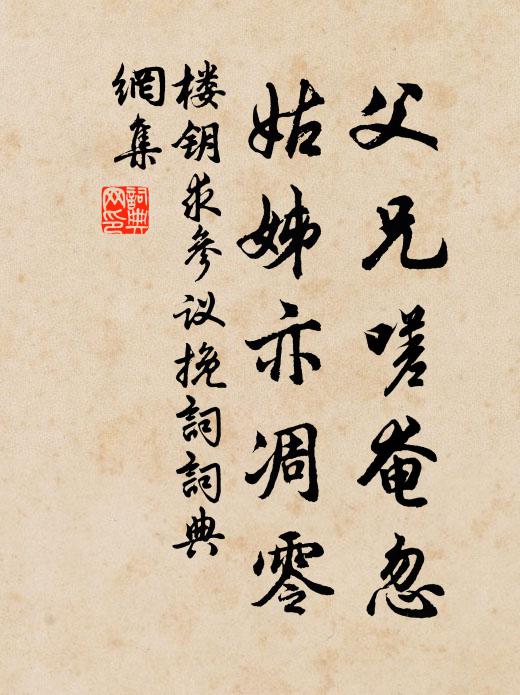 父兄嗟奄忽
姑姊亦凋零
楼钥求参议挽词词典
網集
詞典
网印